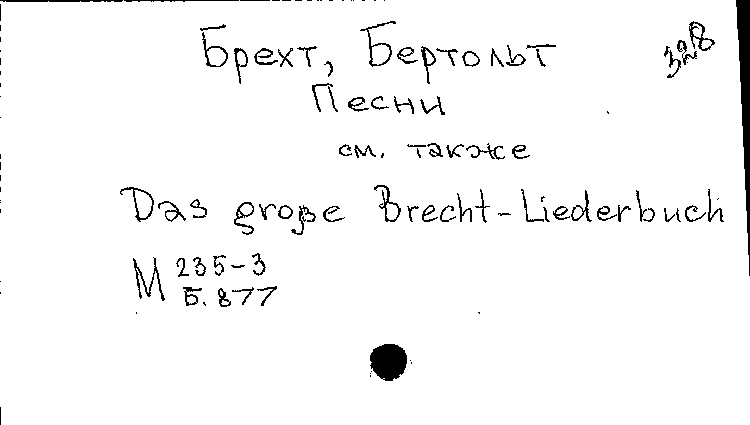 328
Брехт, Бертольт
Песни
см. также
Das große Brecht-Liederbuch
М 235-3
Б. 877